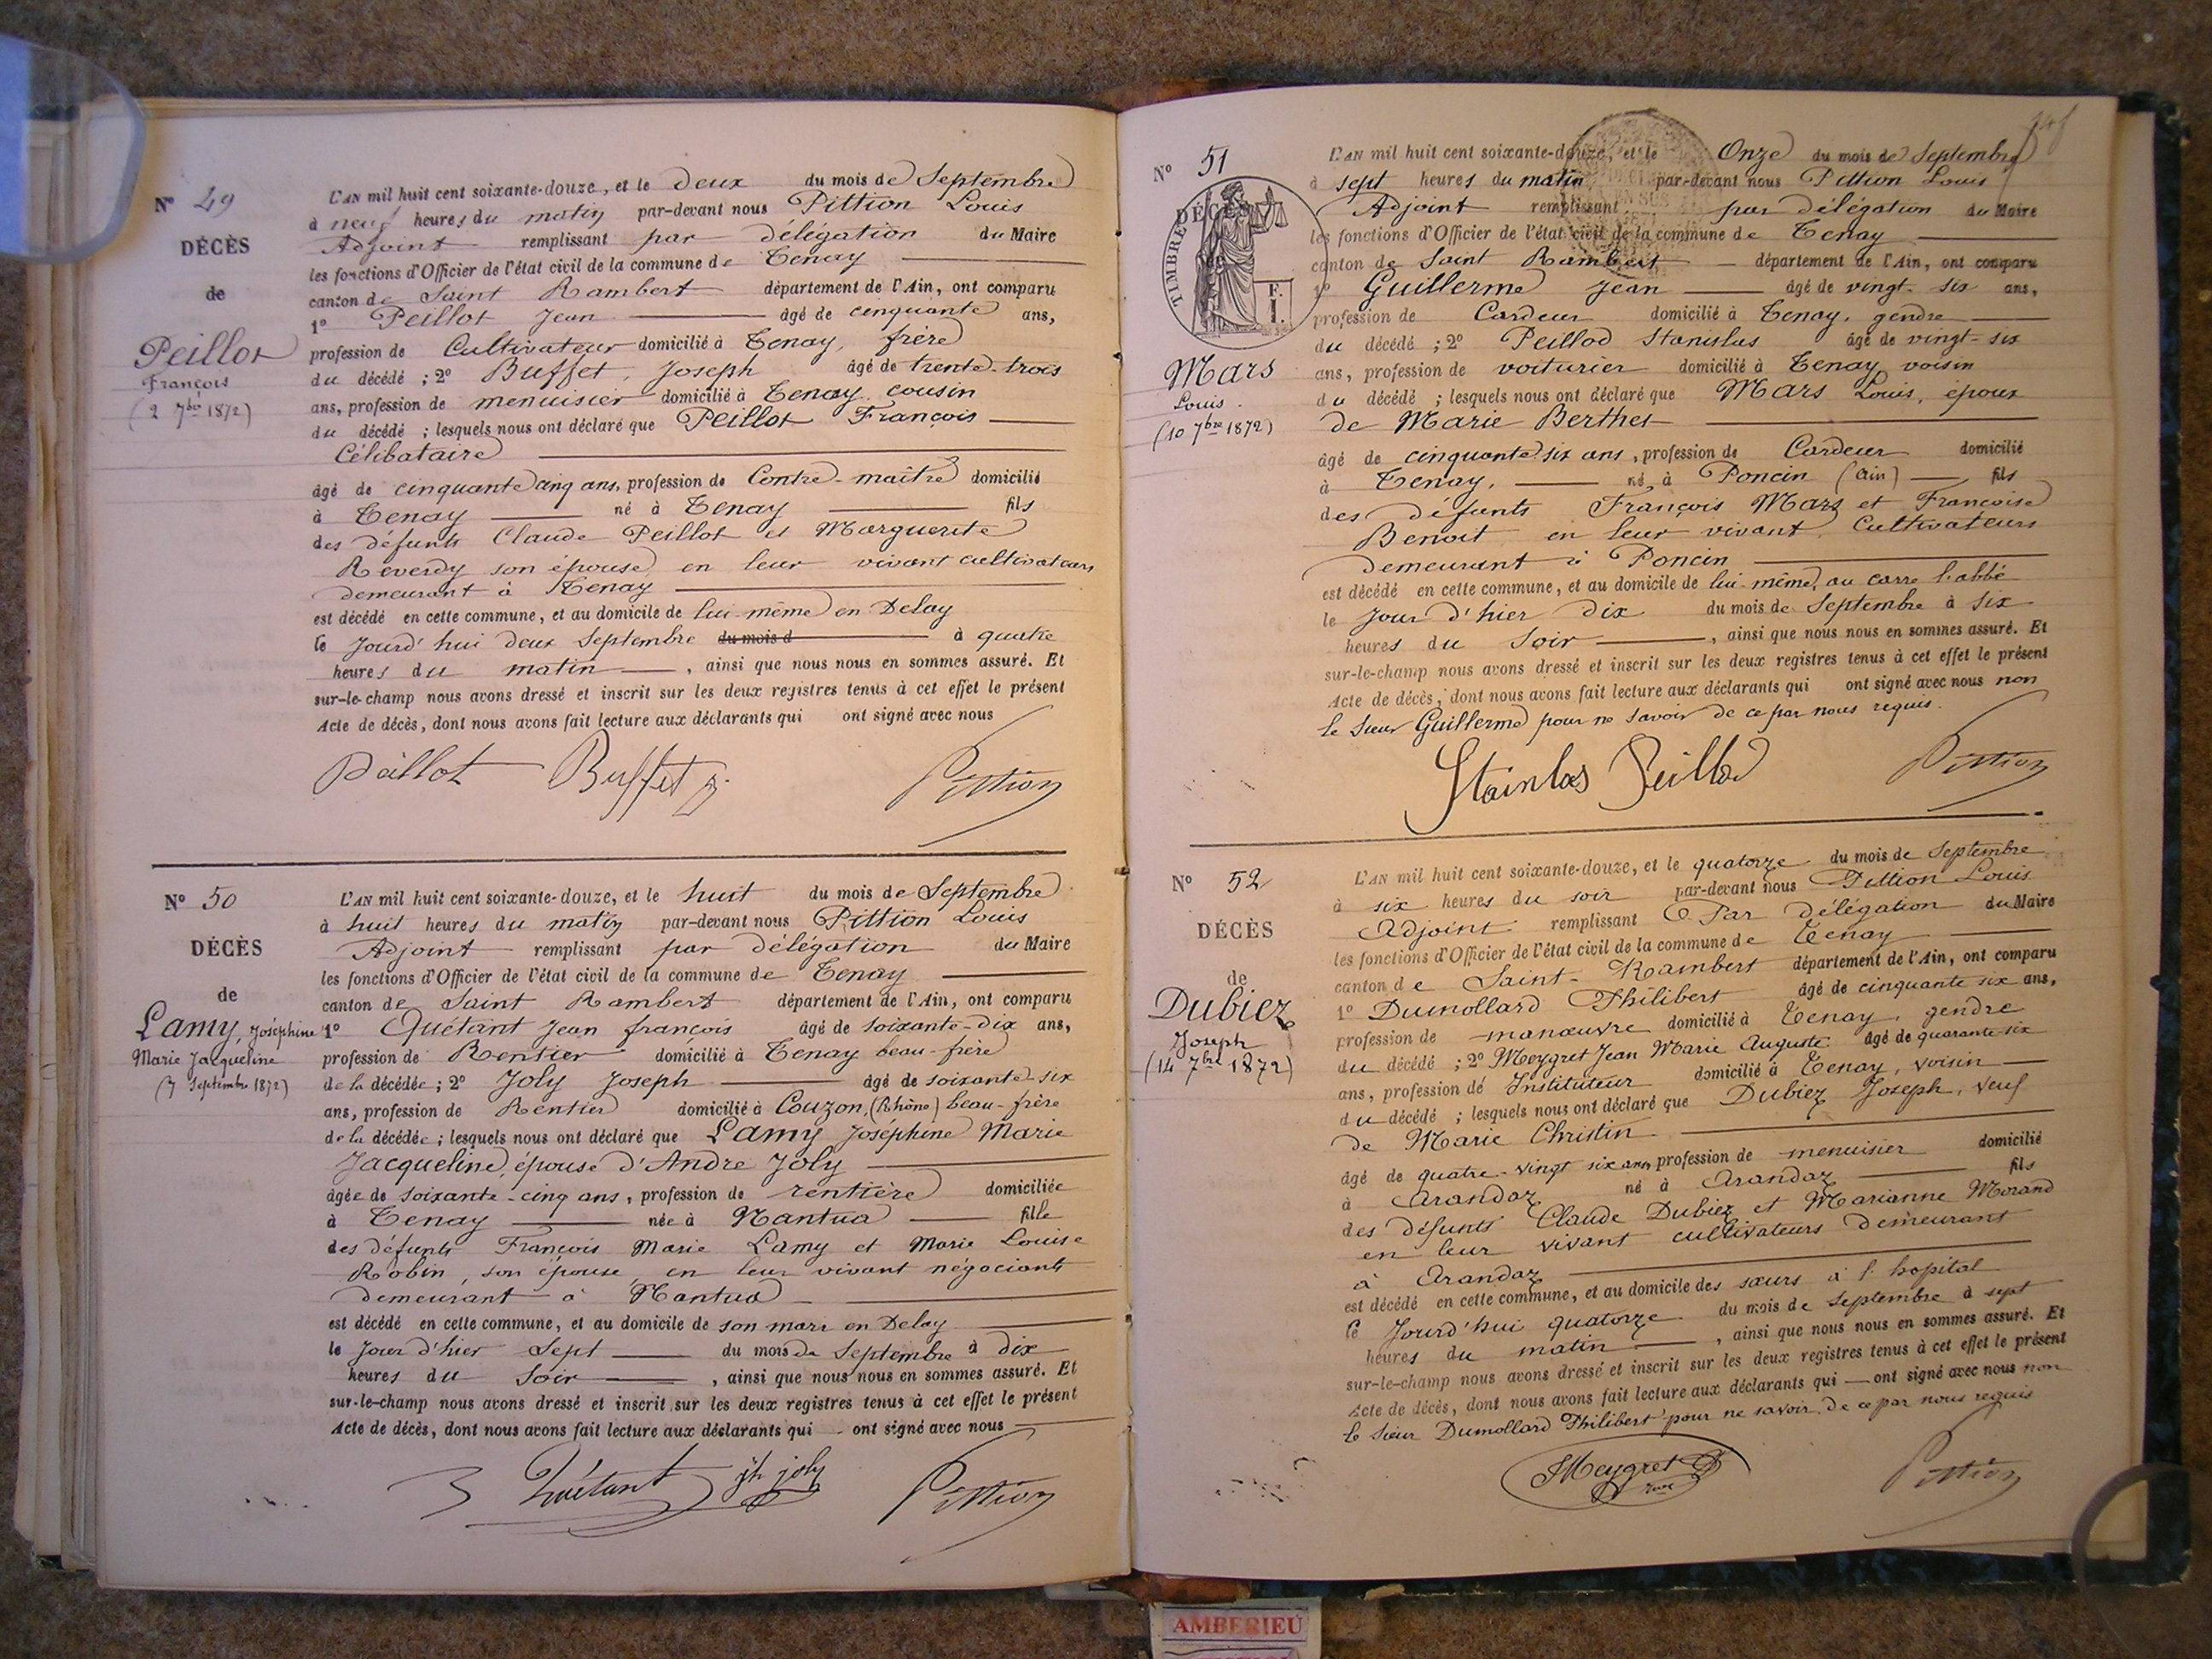 Nº 49
DÉCÈS
de
Peillot
François
(2 7bre 1872)
L'AN mil huit cent soixante-douze, et le deux du mois de Septembre
à neuf heures du matin par-devant nous Pittion Louis
Adjoint remplissant par délégation du Maire
les fonctions d'Officier de l'état civil de la commune de Tenay
canton de Saint Rambert département de l'Ain, ont comparu
1º Peillot Jean âgé de cinquante ans,
profession de Cultivateur domicilié à Tenay, frère
du décédé ; 2º Buffet, Joseph âgé de trente-trois
ans, profession de menuisier domicilié à Tenay cousin
du décédé ; lesquels nous ont déclaré que Peillot François
Célibataire
âgé de cinquante cinq ans, profession de Contre-maître domicilié
à Tenay né à Tenay fils
des défunts Claude Peillot et Marguerite
Reverdy son épouse en leur vivant cultivateurs
demeurant à Tenay
est décédé en cette commune, et au domicile de lui-même en Delay
le Jourd'hui deux Septembre du mois d à quatre
heures du matin , ainsi que nous nous en sommes assuré. Et
sur-le-champ nous avons dressé et inscrit sur les deux registres tenus à cet effet le présent
Acte de décès, dont nous avons fait lecture aux déclarants qui ont signé avec nous
Peillot Buffet j. Pittion
Nº 50
DÉCÈS
de
Lamy, Joséphine
Marie Jacqueline
(7 Septembre 1872)
L'AN mil huit cent soixante-douze, et le huit du mois de Septembre
à huit heures du matin par-devant nous Pittion Louis
Adjoint remplissant par délégation du Maire
les fonctions d'Officier de l'état civil de la commune de Tenay
canton de Saint Rambert département de l'Ain, ont comparu
1º Quétant Jean françois âgé de soixante-dix ans,
profession de Rentier domicilié à Tenay beau-frère
de la décédée ; 2º Joly Joseph âgé de soixante-six
ans, profession de Rentier domicilié à Couzon, (Rhône) beau-frère
de la décédée ; lesquels nous ont déclaré que Lamy Joséphine Marie
Jacqueline, épouse d'André Joly
âgée de soixante-cinq ans, profession de rentière domiciliée
à Tenay née à Nantua fille
des défunts François Marie Lamy et Marie Louise
Robin, son épouse, en leur vivant négociants
demeurant à Nantua
est décédé en cette commune, et au domicile de son mari en Delay
le Jour d'hier Sept du mois de Septembre à dix
heures du Soir , ainsi que nous nous en sommes assuré. Et
sur-le-champ nous avons dressé et inscrit sur les deux registres tenus à cet effet le présent
Acte de décès, dont nous avons fait lecture aux déclarants qui ont signé avec nous
Quétant jh joly Pittion
Nº 51
DÉCÈS
TIMBRE
F.
1.
Mars
Louis.
(10 7bre 1872)
L'AN mil huit cent soixante-douze, et le Onze du mois de Septembre
à sept heures du matin par-devant nous Pittion Louis
Adjoint remplissant par délégation du Maire
les fonctions d'Officier de l'état civil de la commune de Tenay
canton de Saint Rambert département de l'Ain, ont comparu
1º Guillerme Jean âgé de vingt-six ans,
profession de Cardeur domicilié à Tenay, gendre
du décédé ; 2º Peillod Stanislas âgé de vingt-six
ans, profession de voiturier domicilié à Tenay, voisin
du décédé ; lesquels nous ont déclaré que Mars Louis, époux
de Marie Berthet
âgé de cinquante six ans, profession de Cardeur domicilié
à Tenay, né à Poncin (Ain) fils
des défunts François Mars et Françoise
Benoit en leur vivant Cultivateurs
demeurant à Poncin
est décédé en cette commune, et au domicile de lui-même, au carre l'abbé
le Jour d'hier dix du mois de Septembre à six
heures du Soir , ainsi que nous nous en sommes assuré. Et
sur-le-champ nous avons dressé et inscrit sur les deux registres tenus à cet effet le présent
Acte de décès, dont nous avons fait lecture aux déclarants qui ont signé avec nous non
le sieur Guillerme pour ne savoir de ce par nous requis.
Stainlas Peillod Pittion
Nº 52
DÉCÈS
de
Dubiez
Joseph
(14 7bre 1872)
L'AN mil huit cent soixante-douze, et le quatorze du mois de Septembre
à six heures du soir par-devant nous Pittion Louis
Adjoint remplissant Par délégation du Maire
les fonctions d'Officier de l'état civil de la commune de Tenay
canton de Saint-Rambert département de l'Ain, ont comparu
1º Dumollard Philibert âgé de cinquante six ans,
profession de manœuvre domicilié à Tenay, gendre
du décédé ; 2º Meygret Jean Marie Auguste âgé de quarante-six
ans, profession de Instituteur domicilié à Tenay, voisin
du décédé ; lesquels nous ont déclaré que Dubiez Joseph, veuf
de Marie Christin
âgé de quatre-vingt six ans, profession de menuisier domicilié
à Arandaz né à Arandaz fils
des défunts Claude Dubiez et Marianne Morand
en leur vivant cultivateurs demeurant
à Arandaz
est décédé en cette commune, et au domicile des sœurs à l'hopital
le Jourd'hui quatorze du mois de Septembre à sept
heures du matin , ainsi que nous nous en sommes assuré. Et
sur-le-champ nous avons dressé et inscrit sur les deux registres tenus à cet effet le présent
Acte de décès, dont nous avons fait lecture aux déclarants qui ont signé avec nous non
le sieur Dumollard Philibert pour ne savoir de ce par nous requis
Meygret Pittion
AMBERIEU